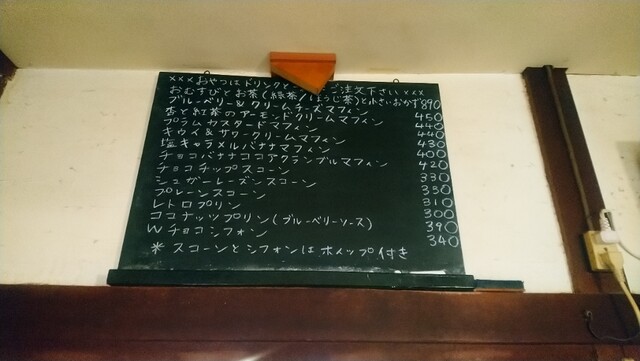 ×××おやつはドリンクと ご注文下さい×××
おむすびとお茶(緑茶/ほうじ茶)と小さいおかず890
ブルーベリー&クリームチーズマフィン 450
杏と紅茶のアーモンドクリームマフィン 440
プラムカスタードマフィン 440
キウイ&サワークリームマフィン 430
塩キャラメルバナナマフィン 400
チョコバナナココアクランブルマフィン 420
チョコチップスコーン 330
シュガーレーズンスコーン 330
プレーンスコーン 310
レトロプリン 300
ココナッツプリン(ブルーベリーソース) 390
Wチョコシフォン 340
* スコーンとシフォンはホイップ付き